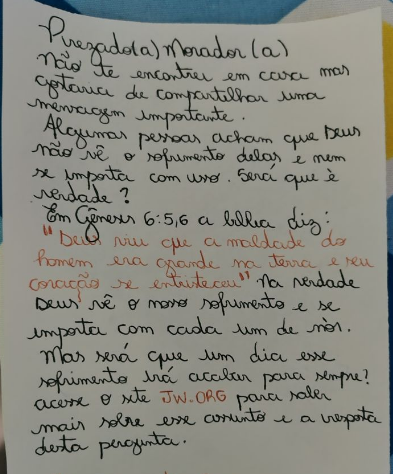 Prezado(a) Morador(a)
não te encontrei em casa mas
gostaria de compartilhar uma
mensagem importante.
Algumas pessoas acham que Deus
não vê o sofrimento delas e nem
se importa com isso. Será que è
verdade?
Em Gênesis 6:5,6 a bíblia diz:
"Deus viu que a maldade do
homem era grande na terra e seu
coração se entristeceu" na verdade
Deus vê o nosso sofrimento e se
importa com cada um de nós.
Mas será que um dia esse
sofrimento irá acabar para sempre?
acesse o site JW.ORG para saber
mais sobre esse assunto e a resposta
desta pergunta.